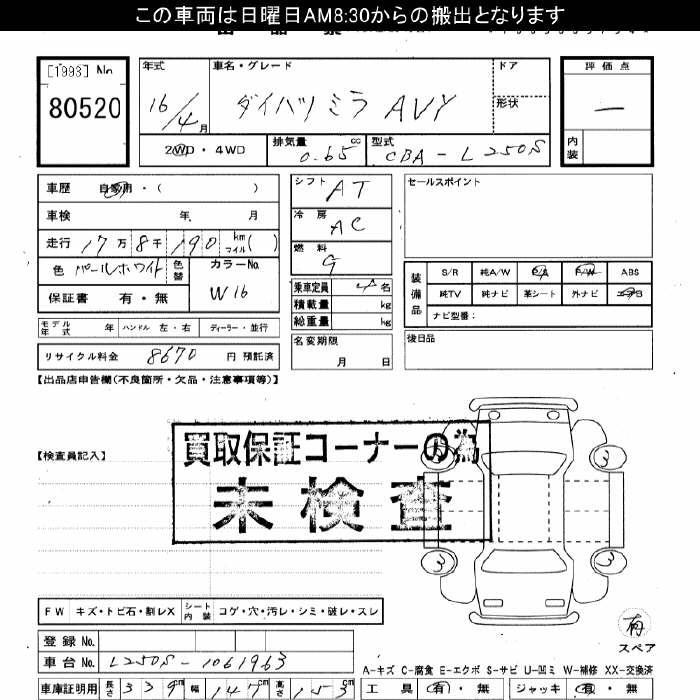 この車両は日曜日AM8:30からの搬出となります
[1993] No
80520
年式
車名・グレード
ドア
評価点
16/4月
ダイハツミラ AVY
形状
—
2WD・4WD
排気量
0.65
cc
型式
CBA-L250S
内装
車歴 自家用・( )
シフト
AT
セールスポイント
車検 年 月
冷房
AC
走行 17万8千190 km マイル( )
燃料
G
色 パールホワイト
色替
カラーNo.
W16
保証書 有・無
乗車定員 4名
積載量 kg
総重量 kg
装備品
S/R 純A/W P/S P/W ABS
純TV 純ナビ 革シート 外ナビ エアB
ナビ型番:
モデル年式 年 ハンドル 左・右 ディーラー・並行
名変期限
月 日
後日品
リサイクル料金 8670 円 預託済
【出品店申告欄(不良箇所・欠品・注意事項等)】
【検査員記入】
買取保証コーナーの為
未検査
3
3
3
FW キズ・トビ石・割レX シート内装 コゲ・穴・汚レ・シミ・破レ・スレ
有
スペア
登録 No.
車台 No. L250S-1061963
A-キズ C-腐食 E-エクボ S-サビ U-凹ミ W-補修 XX-交換済
車庫証明用 長さ 339cm 幅 147cm 高さ 153cm
工具 有・無 ジャッキ 有・無